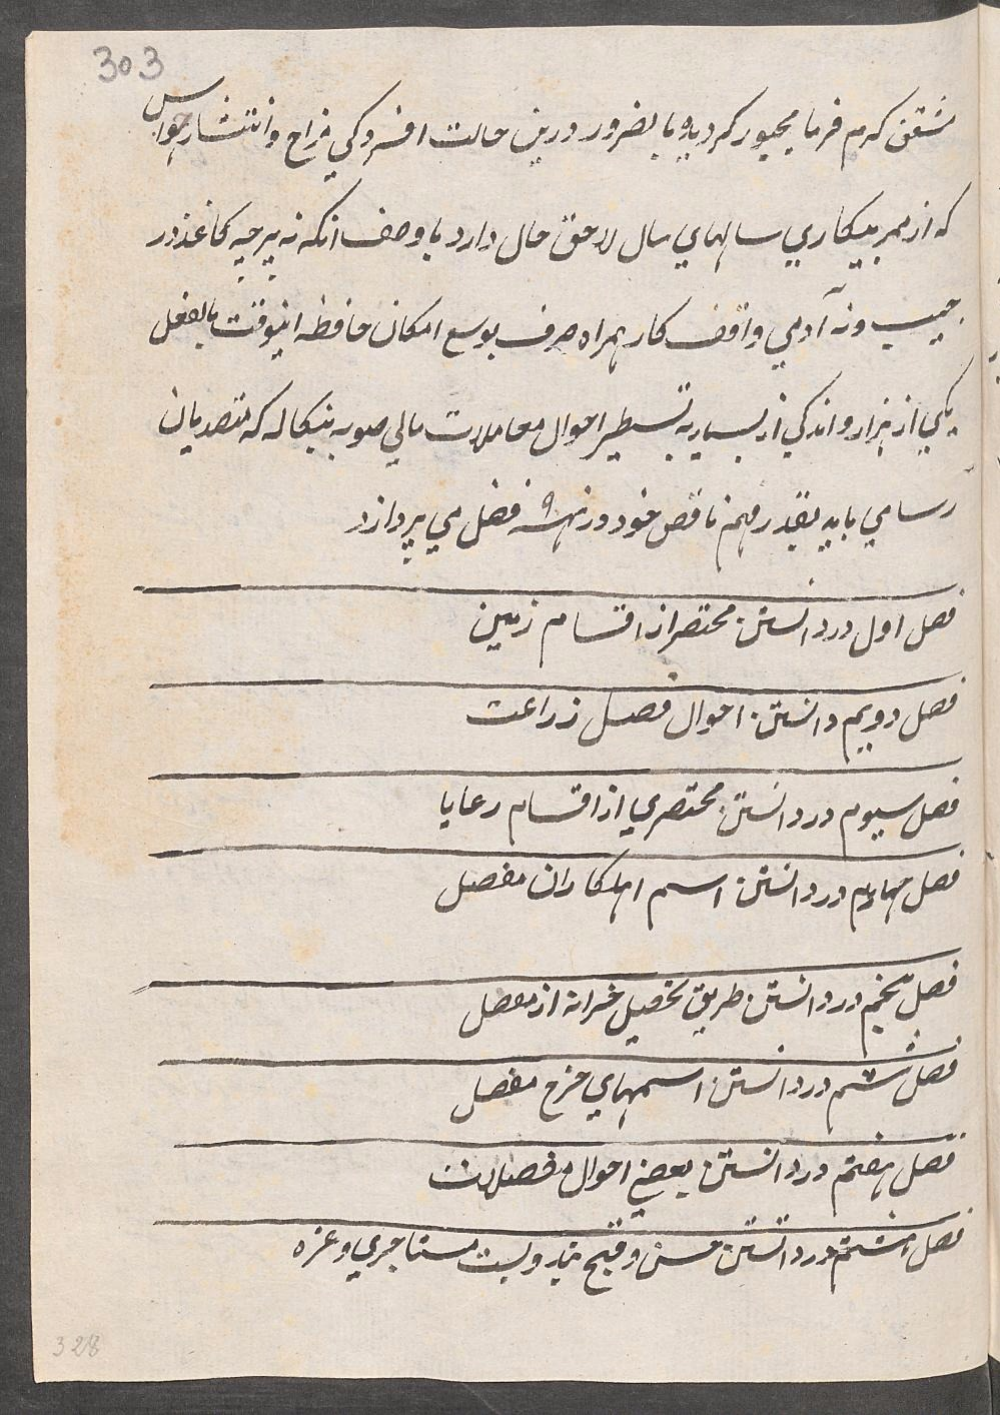 303
مشفق کرم فرما مجبور کردیده بالضرور درین حالت افسردگی مزاج و انتشار حواس
که از ممر بیکاری سالهای سال لاحق حال دارد باوصف انکه نه پرچه کاغذ در
جیب و نه آدمی واقف کار همراه صرف بوسع امکان حافظه اینوقت بالفعل
یکی از هزار و اندکی از بسیار به تسطیر احوال معاملات مالی صوبه بنکاله که متصدیان
را سامی باید بقدر فهم ناقص خود در نه ۹ فصل می پردازد
فصل اول در دانستن مختصر از اقسام زمین
فصل دویم دانستن احوال فصل زراعت
فصل سیوم در دانستن مختصری از اقسام رعایا
فصل چهارم در دانستن اسم اهلکاران مفصل
فصل پنجم در دانستن طریق تحصیل خزانه از مفصل
فصل ششم در دانستن اسمهای خرج مفصل
فصل هفتم در دانستن بعضی احوال مفصلات
فصل هشتم در دانستن حسن و قبح بند و بست مستاجری و غزه
328